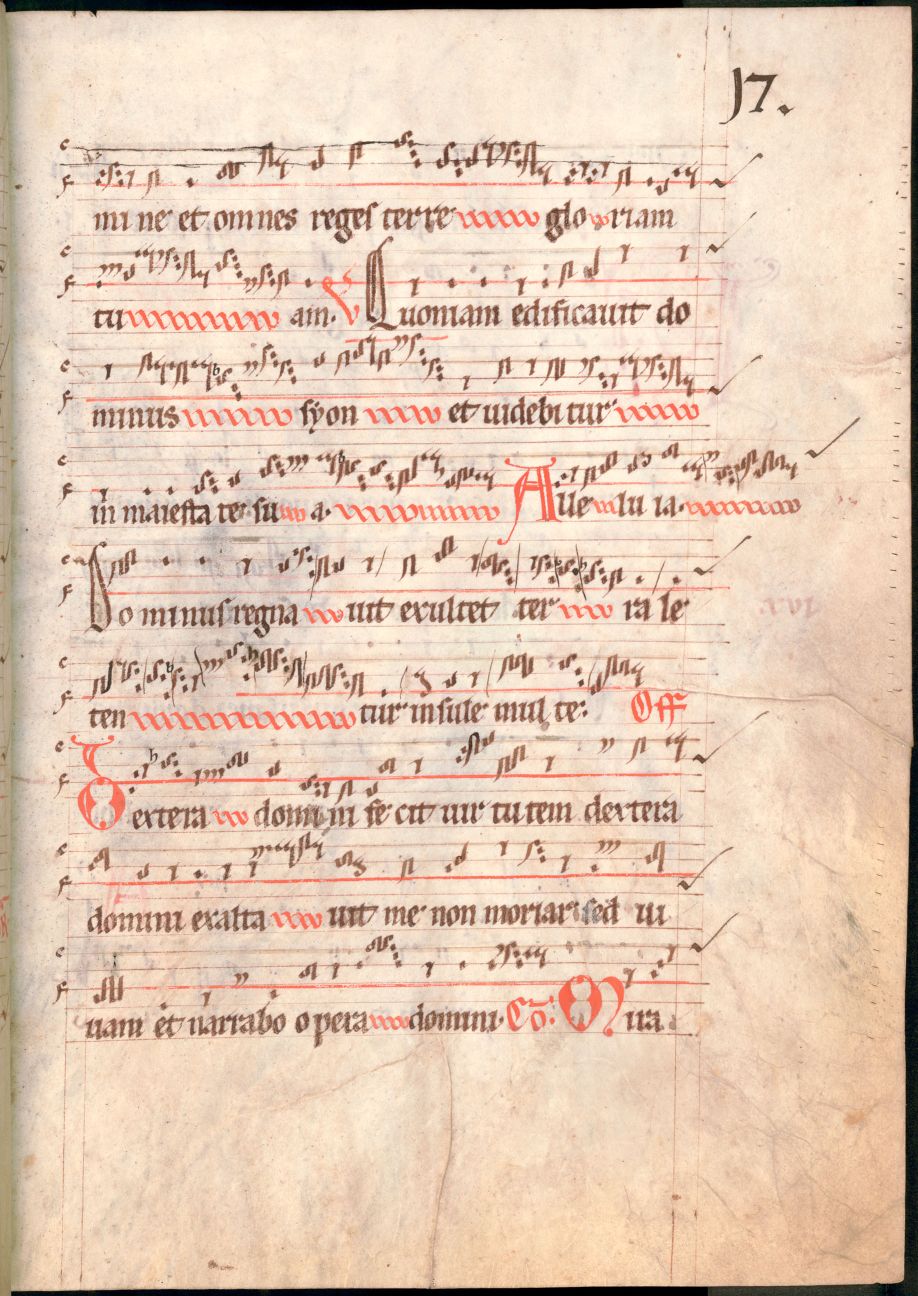 17.
mi ne et omnes reges terre glo riam
tu am. V Quoniam edificauit do
minus syon et uidebi tur
in maiesta te su a. Alle lu ia.
Do minus regna uit exultet ter ra le
ten tur insule mul te: Off
Dextera domini fe cit uir tutem dextera
domini exalta uit me non moriar sed ui
uam et narrabo opera domini. Co: Mira